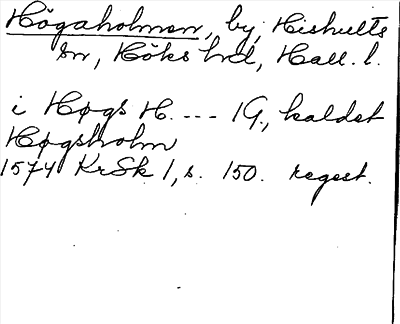 Högaholmen, by, Hishults
sn, Höks hd, Hall. l.
i Høgs H. --- 1G, kaldet
Høgsholm
1574 KrSk 1, s. 150. regest.